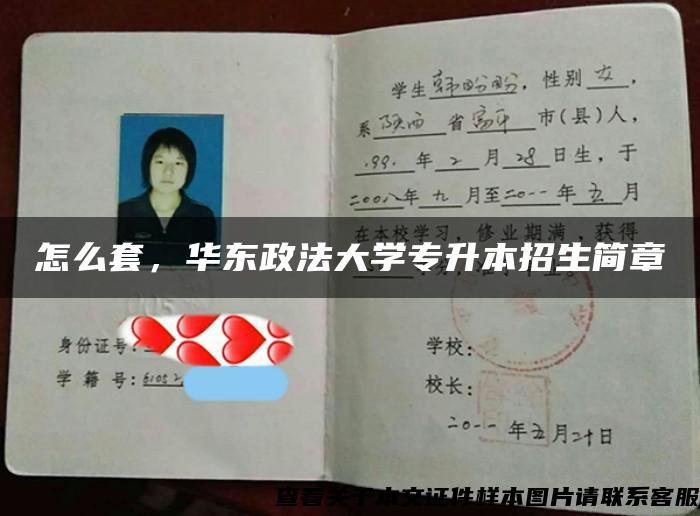 学生韩盼盼，性别女，
系陕西省富平市(县)人，
1991年2月28日生，于
二00八年九月至二0一一年五月
在本校学习，修业期满，获得
怎么套，华东政法大学专升本招生简章
身份证号：
学籍号：6105
学校：
校长：
二0一一年五月二十日
查看关于本文证件样本图片请联系客服